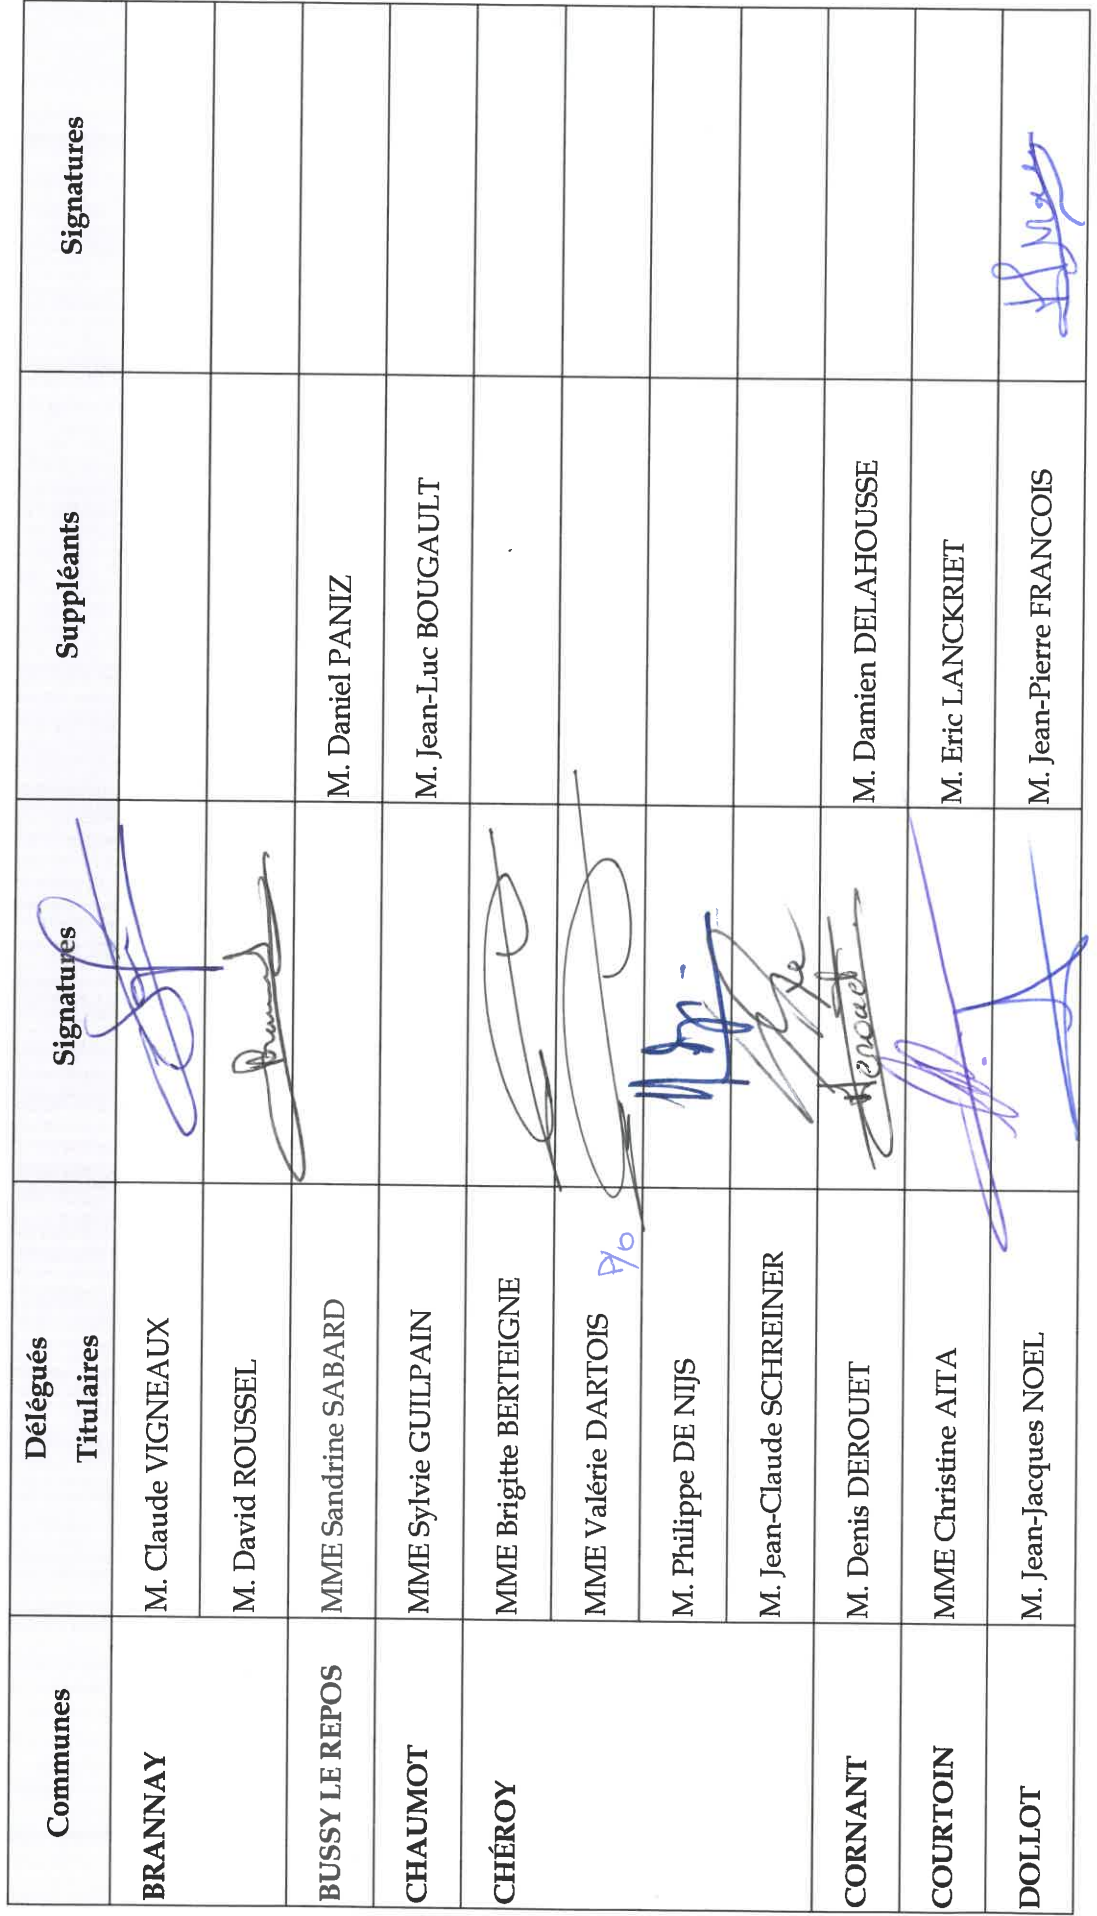 Communes
Délégués
Titulaires
Signatures
Suppléants
Signatures
BRANNAY
M. Claude VIGNEAUX
M. David ROUSSEL
BUSSY LE REPOS
MME Sandrine SABARD
M. Daniel PANIZ
CHAUMOT
MME Sylvie GUILPAIN
M. Jean-Luc BOUGAULT
CHÉROY
MME Brigitte BERTEIGNE
MME Valérie DARTOIS
P/o
M. Philippe DE NIJS
M. Jean-Claude SCHREINER
CORNANT
M. Denis DEROUET
M. Damien DELAHOUSSE
COURTOIN
MME Christine AITA
M. Eric LANCKRIET
DOLLOT
M. Jean-Jacques NOEL
M. Jean-Pierre FRANCOIS